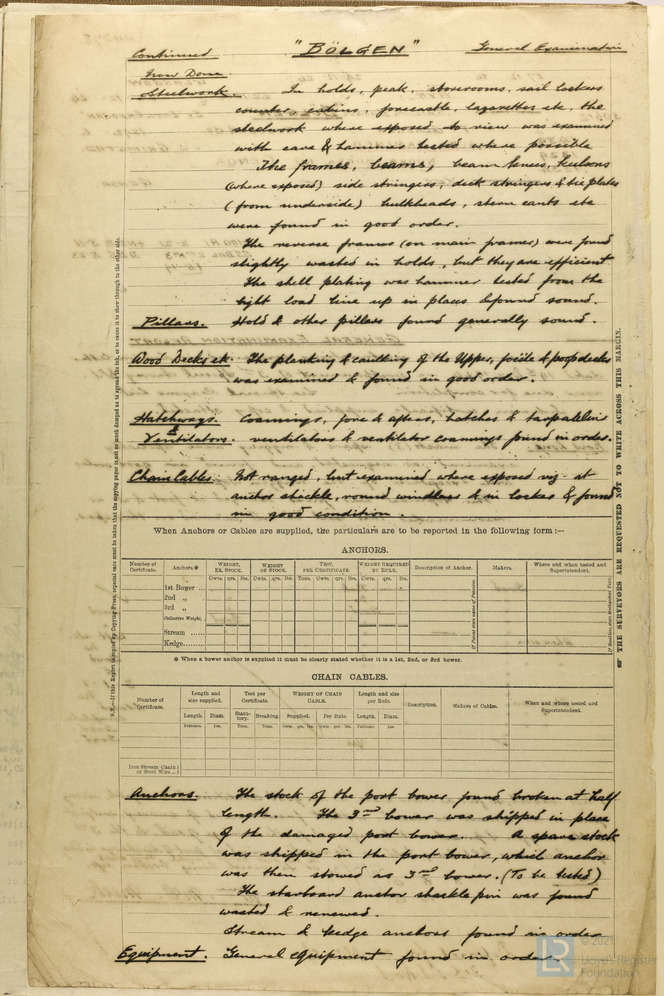 Continued "BÖLGEN" General Examination
Iron Done
Steelwork. In holds, peak, storerooms, sail lockers
counter, cabins, forecastle, lazarettes etc, the
steelwork where exposed to view was examined
with care & hammer tested where possible
The frames, beams, beam knees, keelsons
(where exposed) side stringers, deck stringers & tie plates
(from underside) bulkheads, stern cants etc
were found in good order.
The reverse frames (on main frames) were found
slightly wasted in holds, but they are efficient
The shell plating was hammer tested from the
light load line up in places & found sound.
Pillars. Hold & other pillars found generally sound.
Wood Decks etc. The planking & caulking of the Upper, focsle & poop decks
was examined & found in good order.
Hatchways. Coamings, fore & afters, hatches & tarpaulins
& Ventilators. ventilators & ventilator coamings found in order.
Chain Cables. Not ranged, but examined where exposed viz. at
anchor shackle, round windlass & in locker & found
in good condition.
When Anchors or Cables are supplied, the particulars are to be reported in the following form :—
ANCHORS.
Number of Certificate. Anchors.* WEIGHT, EX. STOCK. WEIGHT OF STOCK. TEST, PER CERTIFICATE. WEIGHT REQUIRED BY RULE. Description of Anchor. Makers. Where and when tested and Superintendent.
Cwts. qrs. lbs. Cwts. qrs. lbs. Tons. Cwt. qrs. lbs. Cwts. qrs. lbs.
1st Bower ...
2nd „
3rd „
Collective Weight.
Stream ......
Kedge.........
* When a bower anchor is supplied it must be clearly stated whether it is a 1st, 2nd, or 3rd bower.
CHAIN CABLES.
Number of Certificate. Length and size supplied. Test per Certificate. WEIGHT OF CHAIN CABLE. Length and size per Rule. Description. Makers of Cables. When and where tested and Superintendent.
Length. Diam. Statutory. Breaking. Supplied. Per Rule. Length. Diam.
Iron Stream Chain or Steel Wire...
Anchors. The stock of the port bower found broken at half
length. The 3rd bower was shipped in place
of the damaged port bower. A spare stock
was shipped in the port bower, which anchor
was then stowed as 3rd bower. (To be tested)
The starboard anchor shackle pin was found
wasted & renewed.
Stream & kedge anchors found in order
Equipment. General equipment found in order.
☞ THE SURVEYORS ARE REQUESTED NOT TO WRITE ACROSS THIS MARGIN.
© 2021
Lloyd's Register
Foundation